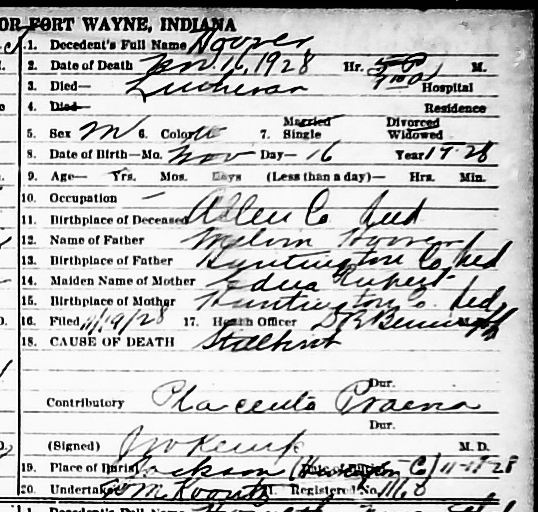 OR FORT WAYNE, INDIANA
1. Decedent's Full Name Hoover
2. Date of Death Nov. 16, 1928 Hr. M.
3. Died— Lutheran Hospital
4. Died— Residence
5. Sex M 6. Color W 7. Married Single Divorced Widowed
8. Date of Birth—Mo. Nov Day—16 Year 1928
9. Age— Yrs. Mos. Days (Less than a day)— Hrs. Min.
10. Occupation —
11. Birthplace of Deceased Allen Co Ind
12. Name of Father Melvin Hoover
13. Birthplace of Father Huntington Co Ind
14. Maiden Name of Mother Edna Rupert
15. Birthplace of Mother Huntington Co. Ind
16. Filed 11/19/28 17. Health Officer
18. CAUSE OF DEATH Stillbirth
Dur.
Contributory Placenta Praevia
Dur.
(Signed) M. D.
19. Place of Burial Jackson (Huntington Co) 11-18-28
20. Undertaker W M Koontz 21. Registered No. 1160